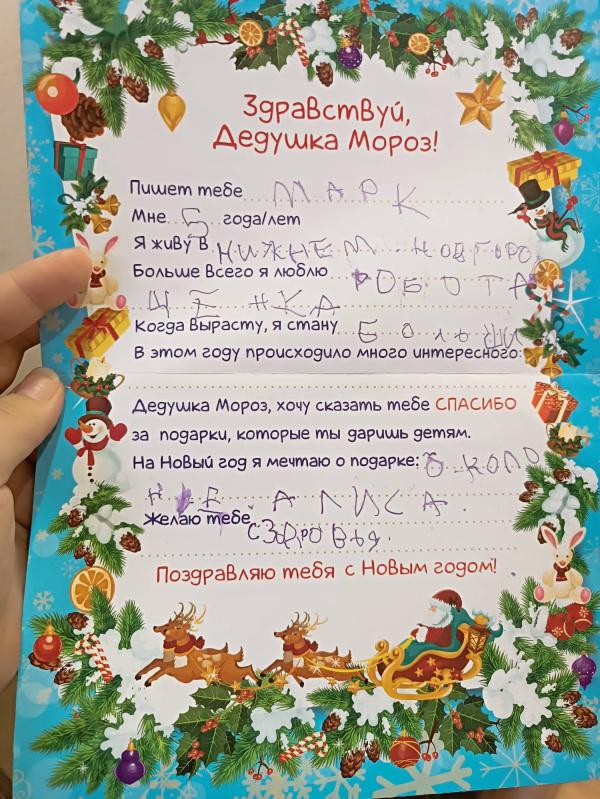 Здравствуй,
Дедушка Мороз!
Пишет тебе МАРК
Мне 5 года/лет
Я живу в НИЖНЕМ НОВГОРО
Больше всего я люблю РОБОТА
ЩЕНКА
Когда вырасту, я стану
В этом году происходило много интересного:
Дедушка Мороз, хочу сказать тебе СПАСИБО
за подарки, которые ты даришь детям.
На Новый год я мечтаю о подарке: КОЛО
НКЕ АЛИСА.
Желаю тебе
Поздравляю тебя с Новым годом!